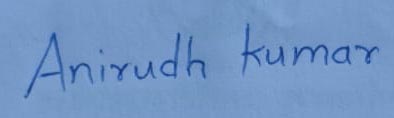 Anirudh kumar